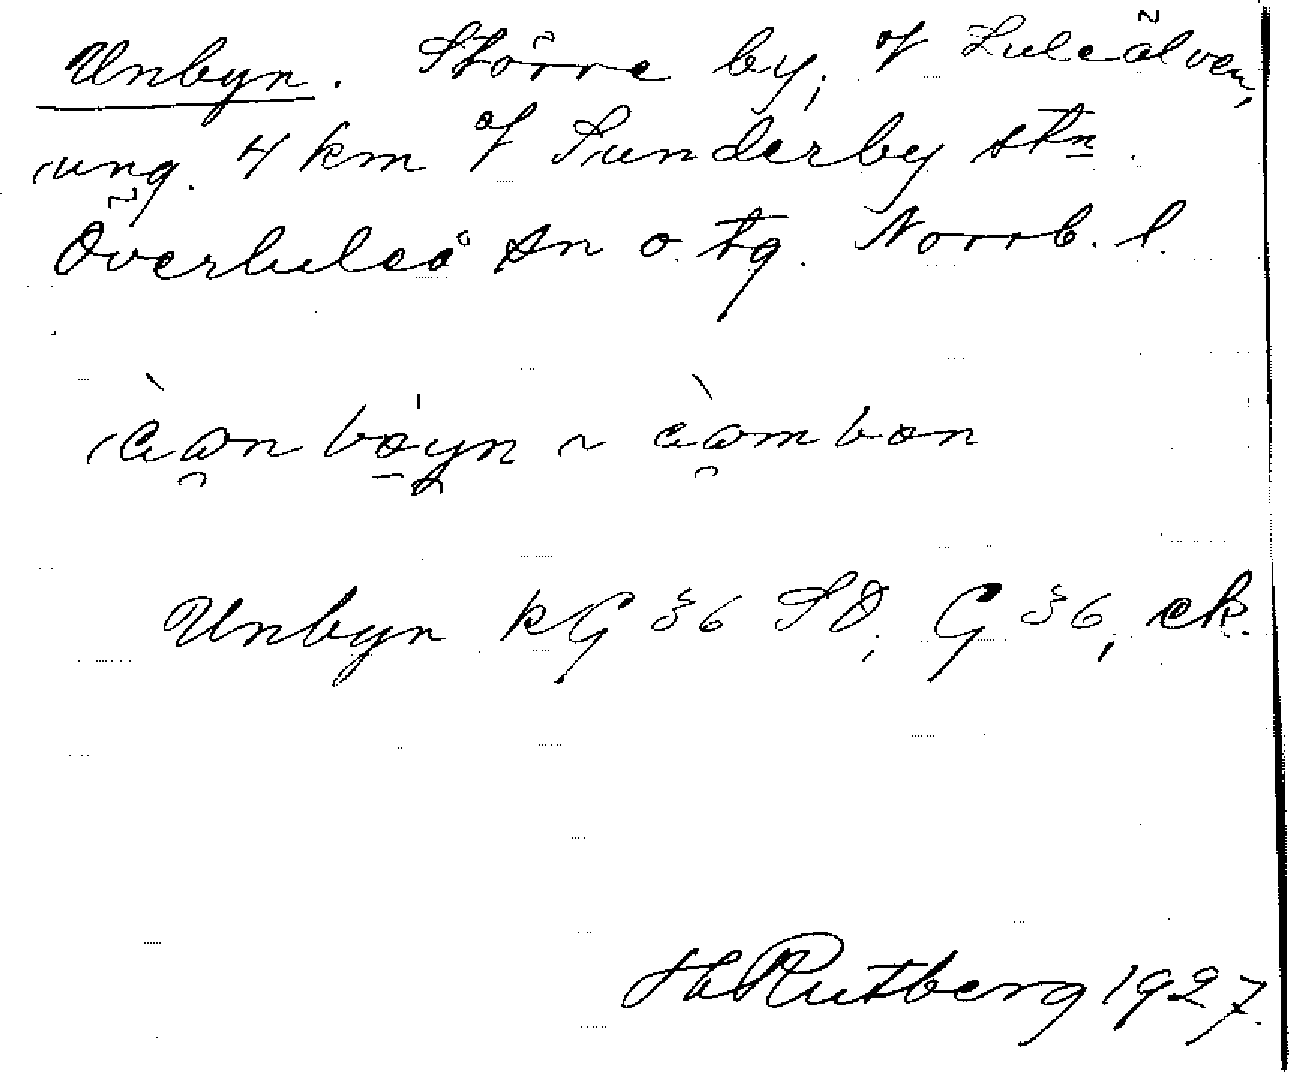 Unbyn. Större by, af Luleälven,
ung. 4 km af Sunderby stn.
Överluleå sn o. tg. Norrb. l.
Unbyn kG 36 SO, G 36, ek.
H Rutberg 1927.